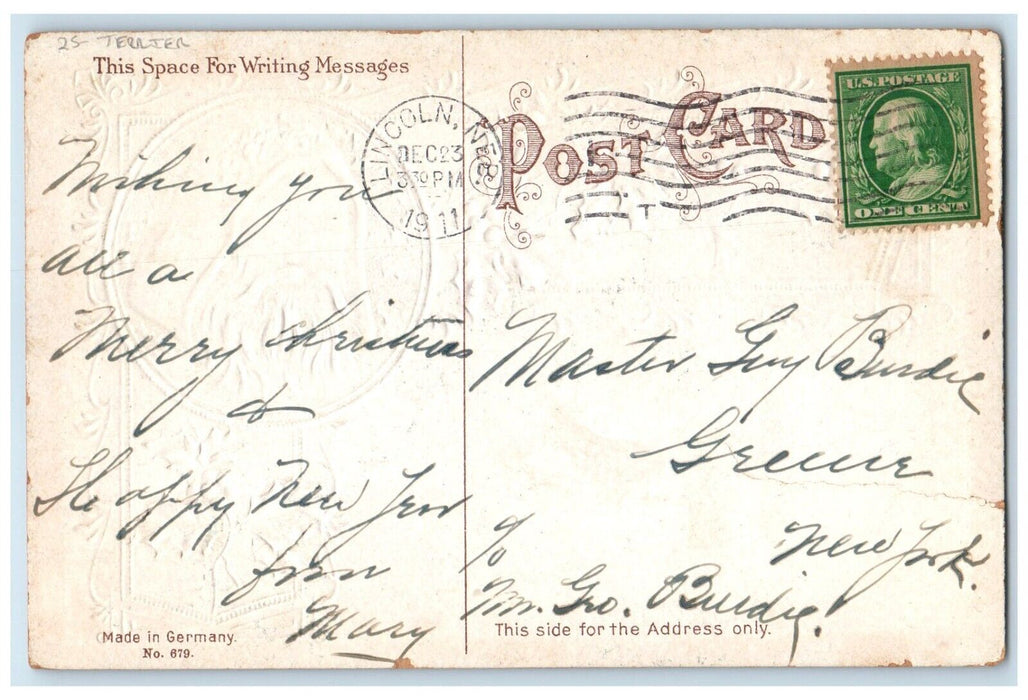 25- TERRIER
This Space For Writing Messages
Wishing you
all a
Merry Christmas
&
Happy New Year
from
Mary
Made in Germany.
No. 679.
POST CARD
LINCOLN, NEB.
DEC 23
330 PM
1911
T
U.S. POSTAGE
ONE CENT
Master Guy Burdic
Greene
New York.
c/o
Mr. Geo. Burdic.
This side for the Address only.